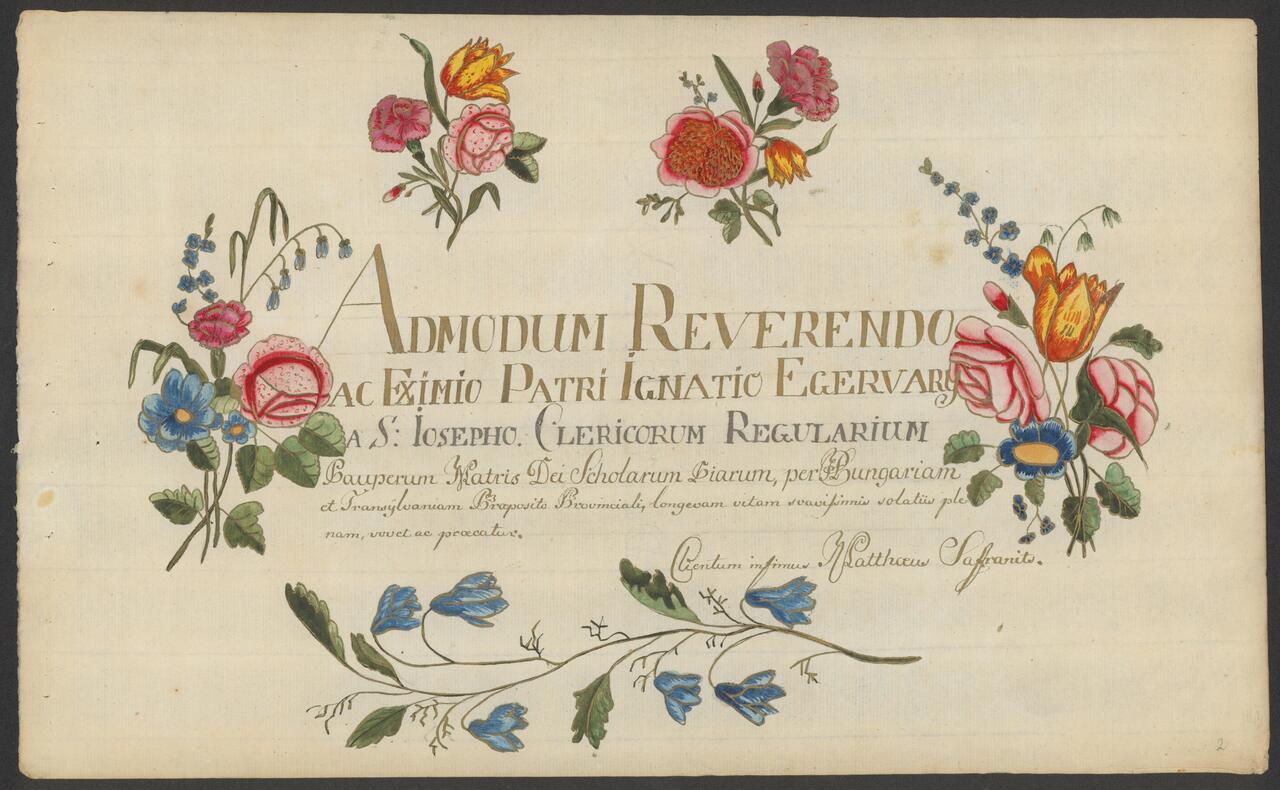 ADMODUM REVERENDO
AC EXIMIO PATRI IGNATIO EGERVARY
A S: IOSEPHO. CLERICORUM REGULARIUM
Pauperum Matris Dei Scholarum Piarum, per Hungariam
et Transÿlvaniam Præposito Provinciali, longevam vitam svavissimis solatiis ple
nam, vovet ac præcatur.
Clientum infimus Matthæus Safranits.
2